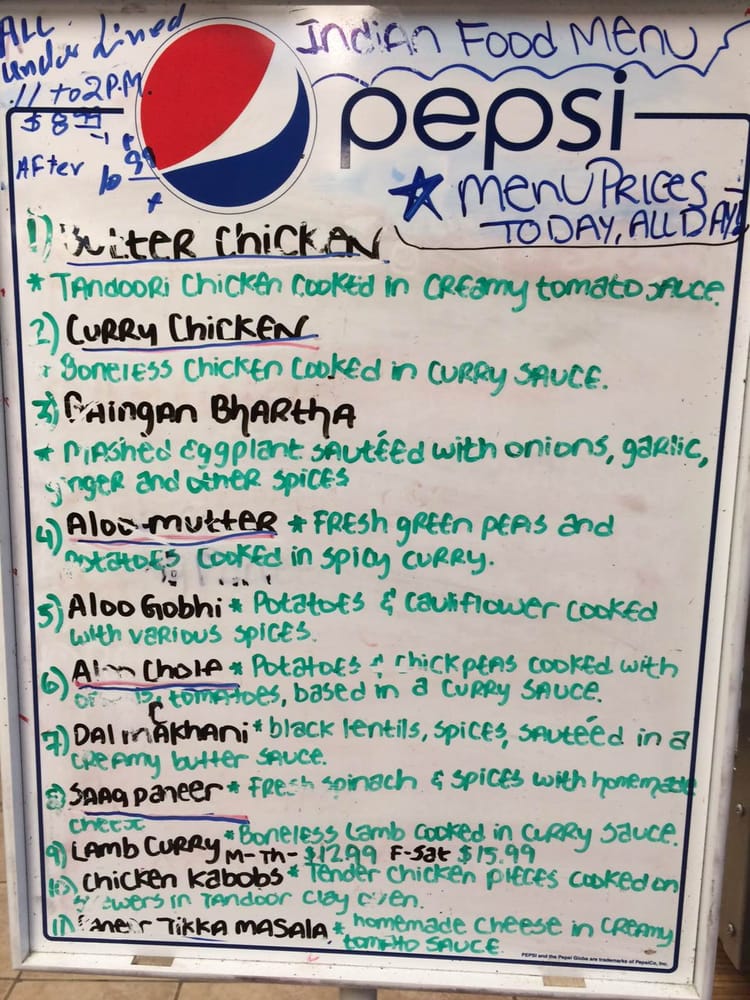 ALL
under Lined
11 to 2 P.M.
$8.99
After 10.99
Indian Food Menu
pepsi
MENU PRICES
TODAY, ALL DAY!
1) BUTTER CHICKEN
* TANDOORI CHICKEN COOKED in CREAMY tomato SAUCE.
2) CURRY CHICKEN
* Boneless CHICKEN COOKED in CURRY SAUCE.
3) BAINGAN BHARTHA
* MASHED Eggplant SAUTÉED with onions, garlic,
ginger and other SPICES
4) Aloo-mutter * FRESH green PEAS and
potatoes cooked in spicy curry.
5) ALOO GOBHI * POTATOES & cauliflower cooked
with various spices.
6) Aloo Chole * POTATOES & chickpeas cooked with
tomatoes, based in a curry sauce.
7) DAL MAKHANI * black lentils, spices, sautéed in a
creamy butter sauce.
8) SAAG paneer * Fresh spinach & spices with homemade
cheese
9) LAMB CURRY * Boneless Lamb cooked in curry sauce.
M-Th- $12.99 F-Sat $15.99
10) Chicken Kabobs * Tender chicken pieces cooked on
skewers in TANDOOR clay oven.
11) Paneer TIKKA MASALA * homemade cheese in CREAMY
tomato sauce
PEPSI and the Pepsi Globe are trademarks of PepsiCo, Inc.